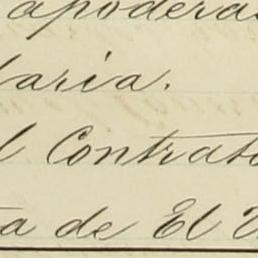 apodera
laria.
l Contrato
ta de El